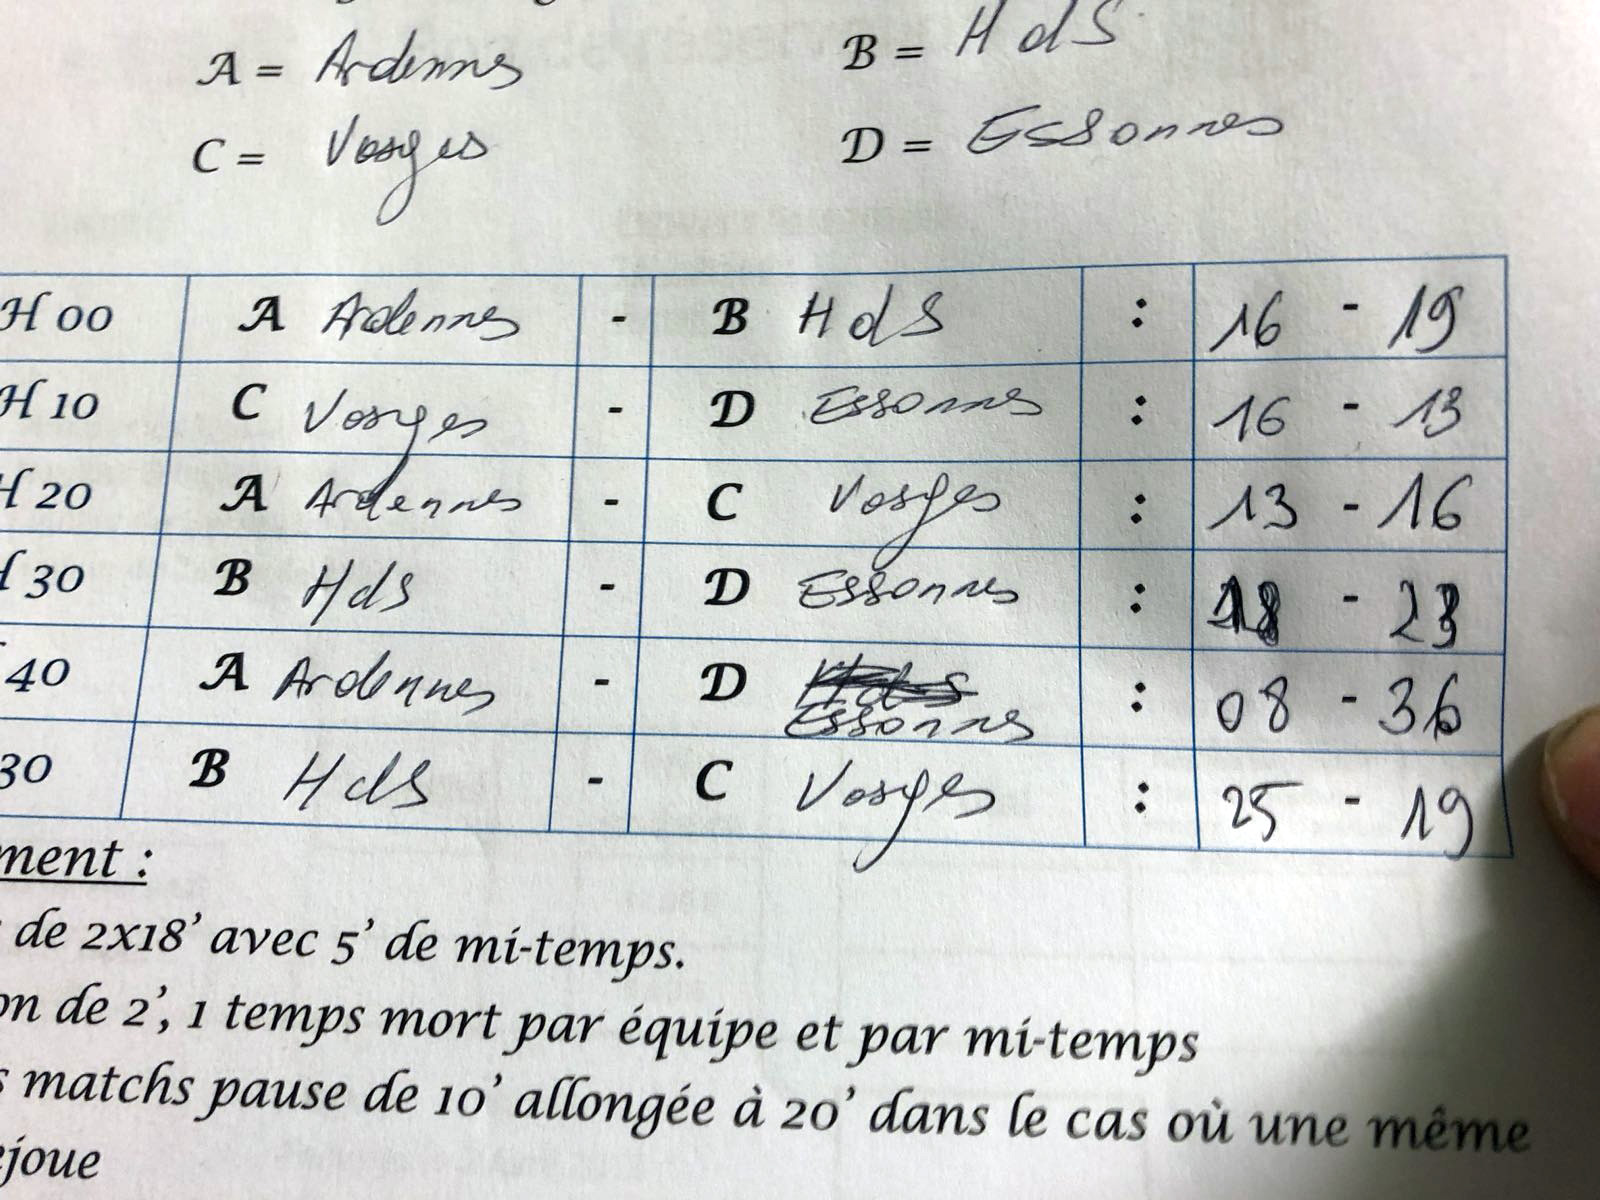 A = Ardennes B = HdS
C = Vosges D = Essonnes
H 00 A Ardennes - B HdS : 16 - 19
H 10 C Vosges - D Essonnes : 16 - 13
H 20 A Ardennes - C Vosges : 13 - 16
H 30 B HdS - D Essonnes : 18 - 23
40 A Ardennes - D Essonnes : 08 - 36
30 B HdS - C Vosges : 25 - 19
ment :
de 2x18’ avec 5’ de mi-temps.
on de 2’, 1 temps mort par équipe et par mi-temps
s matchs pause de 10’ allongée à 20’ dans le cas où une même
ejoue